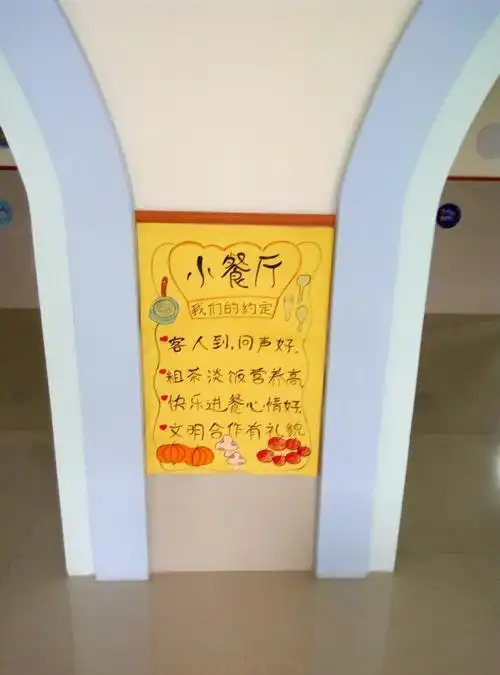 小餐厅
我们的约定
客人到,问声好,
粗茶淡饭营养高,
快乐进餐心情好,
文明合作有礼貌